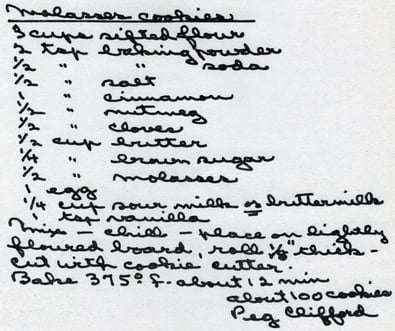 Molasses cookies
3 cups sifted flour
2 tsp baking powder
1/2 " " soda
1/2 " salt
1 " cinnamon
1/2 " nutmeg
1/2 " cloves
1/2 cup butter
1/4 " brown sugar
1/2 " molasses
1 egg
1/4 cup sour milk or buttermilk
1 tsp vanilla
Mix – chill – place on lightly
floured board, roll 1/8" thick –
cut with cookie cutter.
Bake 375° F. about 12 min
about 100 cookies
Peg Clifford